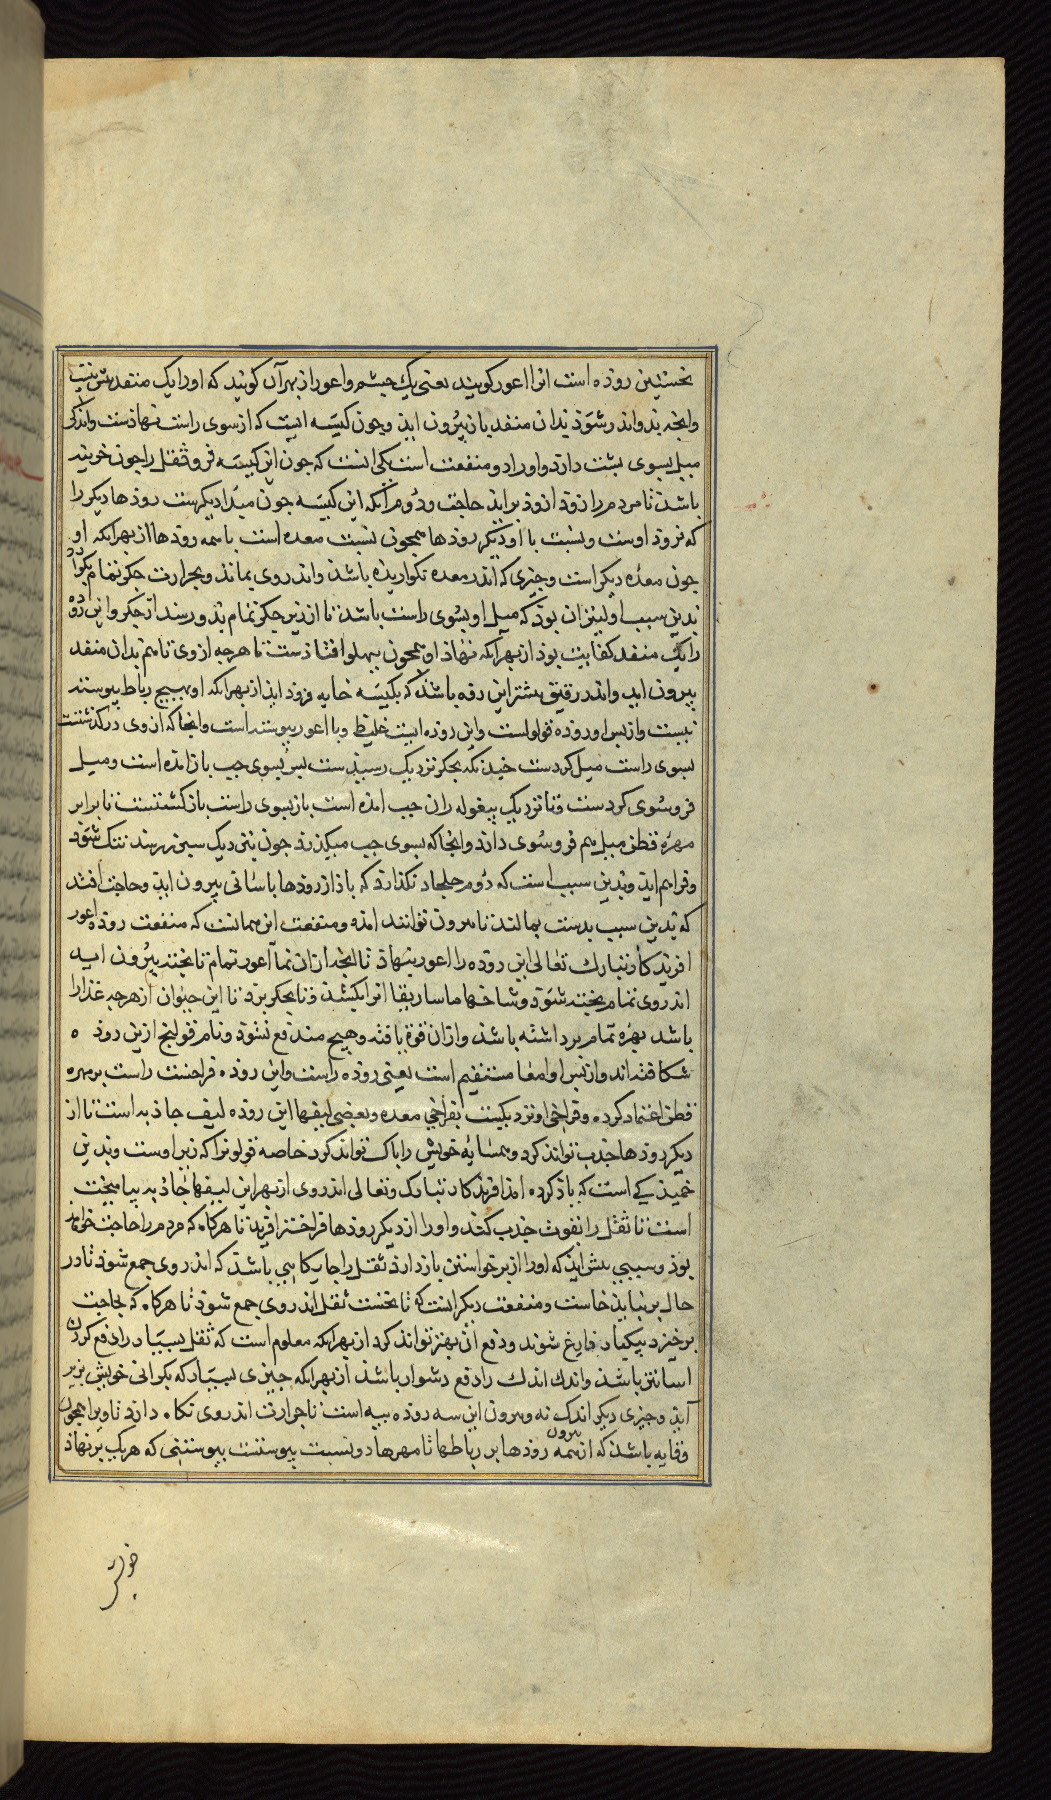 نخستین روده است انرا اعور کویند یعنی یک چشم و اعور از بهر آن کویند که اورا یک منفد بیش نیست
وانجه بدو اندر شوذ بدان منفد باز بیرون ایذ و چون کیسه ایست که از سوی راست نهاذست واندکی
میل بسوی پشت دارد و اورا دو منفعت است یکی انست که چون این کیسه فرو ثقل را چون خزینه
باشد تا مردم را زود ازوذ بر اید حاجت و دوم آنکه این کیسه چون مبدا دیکرست روذها دیکر را
که فروذ اوست و نسبت با او دیکر روذها همچون نسبت معده است با همه روذها از بهر آنکه او
چون معده دیکر است و چیزی که اندر معده نکواریذه باشذ و اندر وی بماند و بحرارت جکر تمام بکوارد
بدین سبب اولیتر ان بوذ که میل او بسوی راست باشذ تا از زیر جکر تمام بذو رسد از جکر و این روده
را یک منفد کفایت بوذ از بهر آنکه نهاذ او همچون بپهلو افتاذست تا هرچه از وی تا هم بدان منفد
بیرون اید و اندر رقیق بیشتر این رفه باشذ که بکیسه خایه فروذ ایذ از بهر آنکه او بهیچ رباط پیوسته
نیست و از پس او روده قولولست و این روده ایست غلیظ و با اعور پیوسته است و انجا که از وی درکذشتست
بسوی راست میل کردست خیدنکه بجکر نزدیک رسیدست پس بسوی چپ باز امده است و میل
فروسوی کردست و تا نزدیک بیغوله ران چپ امذه است باز بسوی راست باز کشتست تا برابر
مهره قطن میل هم فروسوی دارد و انجا که بسوی چپ میکذرد چون بنزدیک سپرز رسد تنک شوذ
و فراهم اید و بدین سبب است که دوم جلجاد نکذارد که باذ از روذها باسانی بیرون ایذ و حاجت افتد
که بدین سبب بدست بمالند تا بیرون توانند امذ و منفعت این همانست که منفعت روده اعور
افریذکار تبارک تعالی این روده را اعور بنهاذ تا انجه از ان تمآ آعور تمام نابخته بیرون اید
اندر وی تمام پخته شوذ و شاخها ماساریقا انرا بکشذ و تا بجکر برد تا این حیوان از هرچه غذا را
باشد بهره تمام برداشته باشذ و از ان قوة یافته و هیچ مندفع نشوذ و نام قولنج ازین روذ ه
شکافته اند و از پس او امعا مستقیم است یعنی روده راست و این روذه فراخست راست بر مهره
قطن اعتماد کرده و فراخی او نزدیکیست بفراخی معده و بعضی لیفها این روده لیف جاذبه است تا از
دیکر روذها جذب تواند کرد و همسایه خویش را پاک تواند کرد خاصه قولون را که زبر اوست و بدین
خمیذکی است که یاذ کرده امد افریذکار تبارک و تعالی اندر وی از بهر این لیفها جاذبه بیامیخت
است تا ثقل را بقوت جذب کند و اورا از دیکر روذها فراختر افرید تا هرکاه که مردم را حاجت خواهد
بوذ و سببی پیش ایذ که اورا از برخواستن باز دارد ثقل را جایکاهی باشد که اندر وی جمع شوذ تا در
حال بر نبایذ خاست و منفعت دیکر انست که تا نخست ثقل اندر وی جمع شوذ تا هرکاه که بحاجت
برخیزد بیکبار فارغ شوند و دفع ان بهتر تواند کرد از بهر آنکه معلوم است که ثقل بسیار را دفع کردن
اسانتر باشذ و اندک اندک را دفع دشوار باشذ از بهر آنکه چیزی بسیار که بکرانی خویش بزیر
آید و چیزی دیکر اندک نه و بیرون این سه روده پیه است تا حرارت اندر وی نکاه دارد تا ویرا همچون
وقایه باشذ که از همه بیرون روذها بر رباطها تا مهرهاد و نسبت پیوستست پیوستنی که هر یک بر نهاذ
خویش